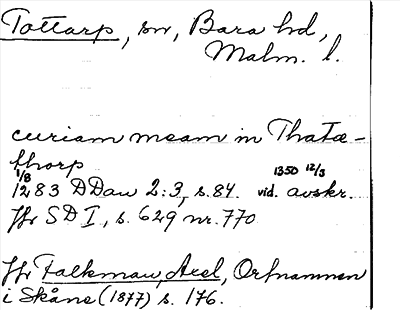 Tottarp, sn, Bara hd,
Malm. l.
curiam meam in Thatæ-
thorp
1/8 1350 12/3
1283 DDan 2:3, s. 84. vid. avskr.
Jfr SD I, s. 629 nr. 770
Jfr Falkman, Axel, Ortnamnen
i Skåne (1877) s. 176.